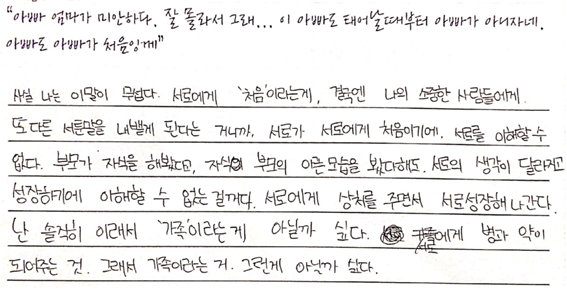 "아빠 엄마가 미안하다. 잘 몰라서 그래... 이 아빠도 태어날때부터 아빠가 아니자네.
아빠도 아빠가 처음잉께"
사실 나는 이말이 무섭다. 서로에게 '처음'이라는게, 결국엔 나의 소중한 사람들에게
또다른 서툰말을 내뱉게 된다는 거니까, 서로가 서로에게 처음이기에. 서로를 이해할 수
없다. 부모가 자식을 해봤다고, 자식이 부모의 어른모습을 봤다해도. 서로의 생각이 달라지고
성장하기에 이해할 수 없는 걸꺼다. 서로에게 상처를 주면서 서로성장해 나간다.
난 솔직히 이래서 '가족'이라는게 아닐까 싶다. 서로에게 병과 약이
되어주는 것. 그래서 가족이라는 거. 그런게 아닌가 싶다.